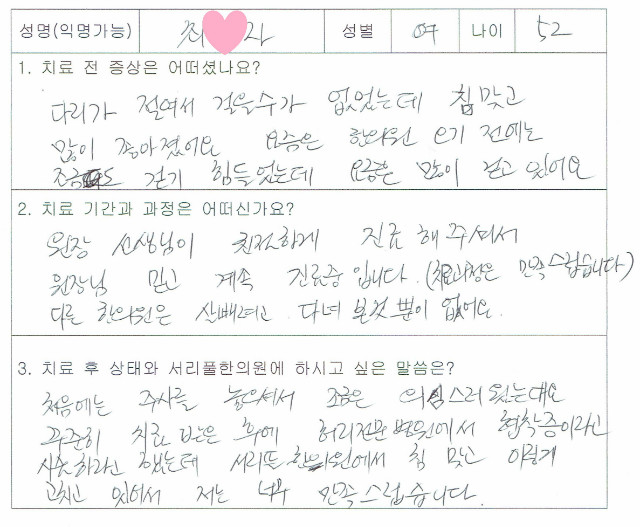 성명(익명가능) 최 라 성별 여 나이 52
1. 치료 전 증상은 어떠셨나요?
다리가 절여서 걸을수가 없었는데 침 맞고
많이 좋아졌어요 요즘은 한의원 오기 전에는
조금도 걷기 힘들었는데 요즘은 많이 걷고 있어요
2. 치료 기간과 과정은 어떠신가요?
원장 선생님이 친절하게 진료 해 주셔서
원장님 믿고 계속 진료중 입니다. (치료과정은 만족스럽습니다)
다른 한의원은 살빼려고 다녀 본것 뿐이 없어요.
3. 치료 후 상태와 서리풀한의원에 하시고 싶은 말씀은?
처음에는 주사를 놓으셔서 조금은 의심스러웠는데요
꾸준히 치료 받은 후에 허리전문병원에서 협착증이라고
수술하라고 했는데 서리풀 한의원에서 침 맞고 이렇게
고치고 있어서 저는 너무 만족스럽습니다.